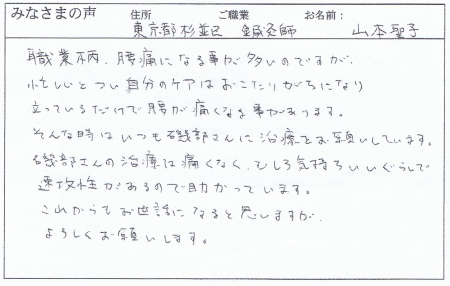 みなさまの声 住所 ご職業 お名前：
東京都杉並区 鍼灸師 山本聖子
職業柄、腰痛になる事が多いのですが、
忙しいとつい自分のケアはおこたりがちになり
立っているだけで腰が痛くなる事があります。
そんな時はいつも磯部さんに治療をお願いしています。
磯部さんの治療は痛くなく、むしろ気持ちいいぐらいで
速攻性があるので助かっています。
これからもお世話になると思いますが、
よろしくお願いします。